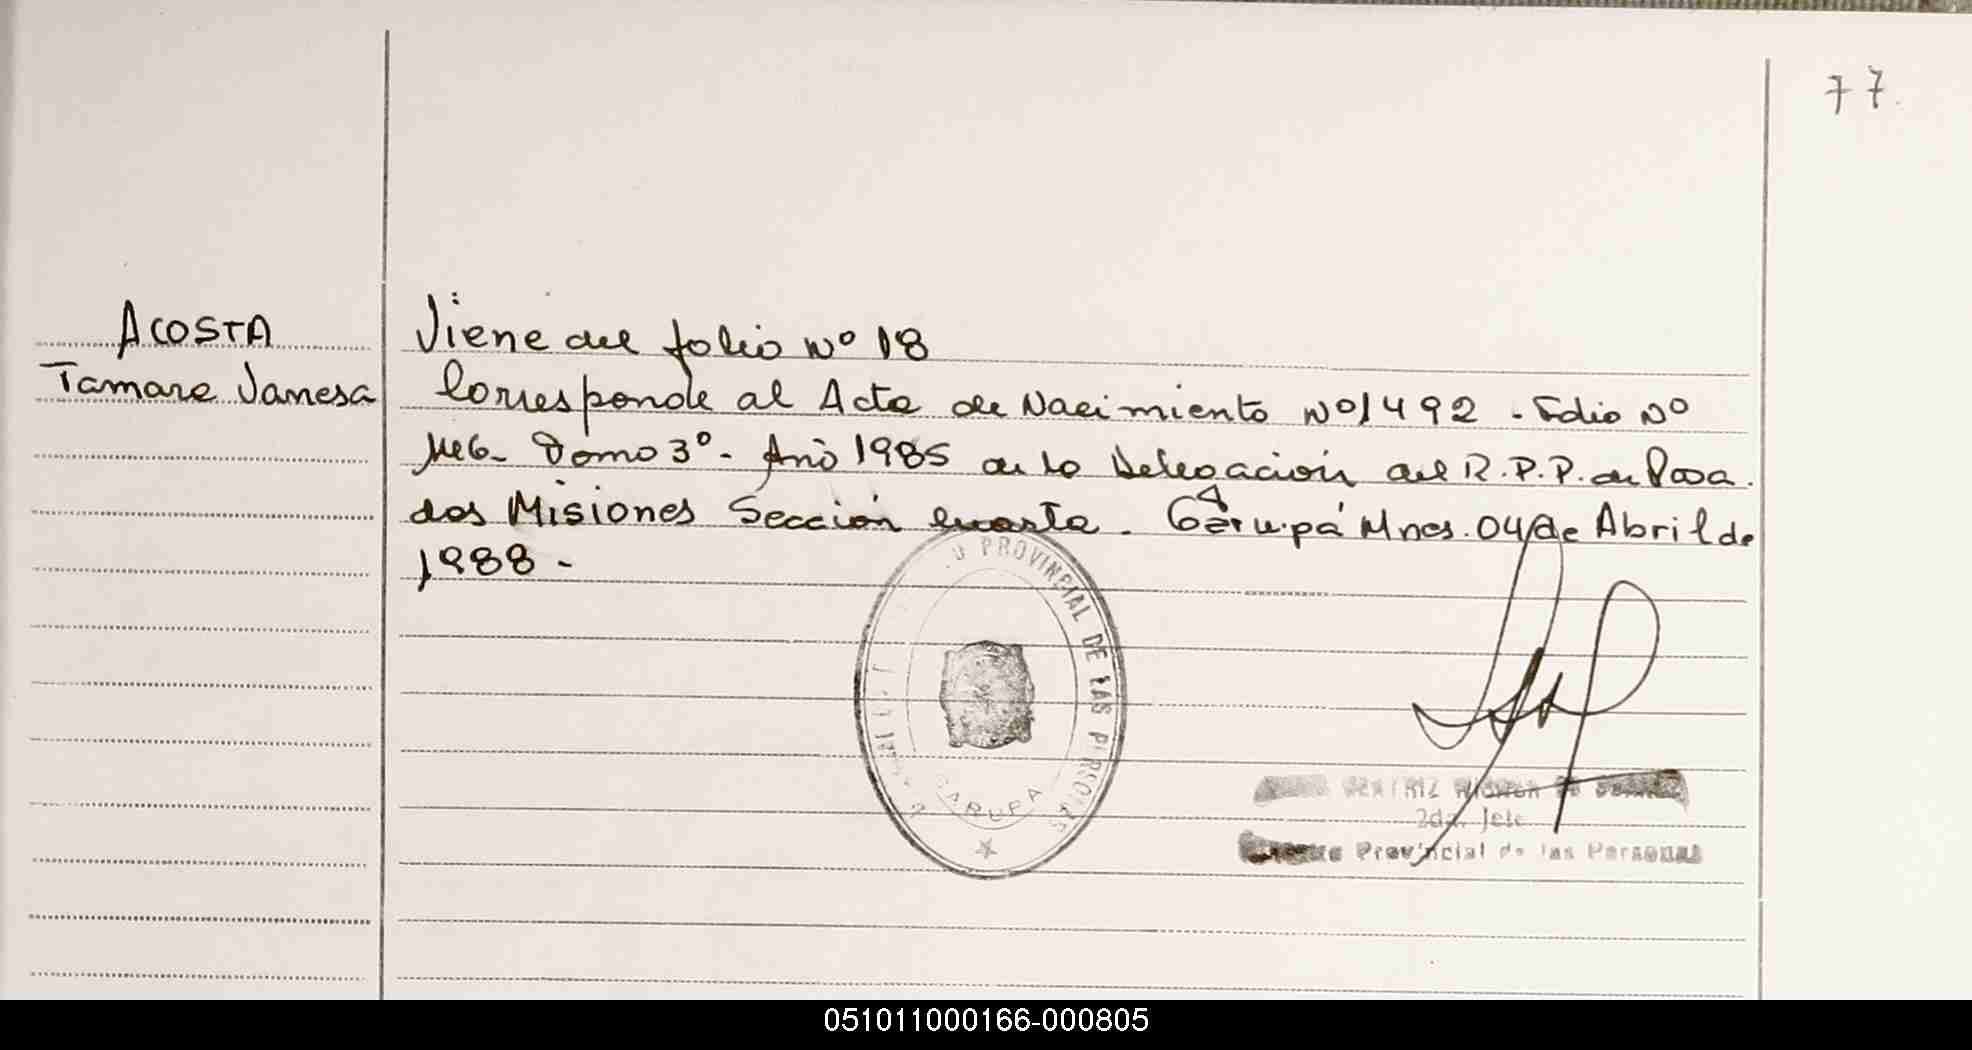 77.
ACOSTA
Tamara Vanesa
Viene del folio Nº 18
Corresponde al Acta de Nacimiento Nº 1492 - Folio Nº
146- Tomo 3º - Año 1985 de la Delegación del R.P.P. de Posa
das Misiones Sección cuarta. Garupá Mnes. 04 de Abril de
1988 -
PROVINCIAL DE LAS PERSONAS
GARUPA
2da. Jefe
Provincial de las Personas
051011000166-000805